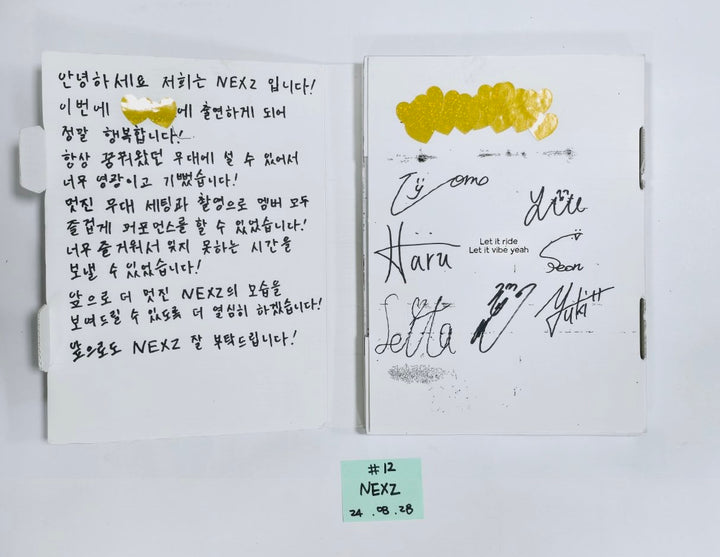 안녕하세요 저희는 NEXZ 입니다!
이번에 에 출연하게 되어
정말 행복합니다!
항상 꿈꿔왔던 무대에 설 수 있어서
너무 영광이고 기뻤습니다!
멋진 무대 세팅과 촬영으로 멤버 모두
즐겁게 퍼포먼스를 할 수 있었습니다!
너무 즐거워서 잊지 못하는 시간을
보낼 수 있었습니다!
앞으로 더 멋진 NEXZ의 모습을
보여드릴 수 있도록 더 열심히 하겠습니다!
앞으로도 NEXZ 잘 부탁드립니다!
Haru
Let it ride
Let it vibe yeah
Yuki
#12
NEXZ
24.08.28